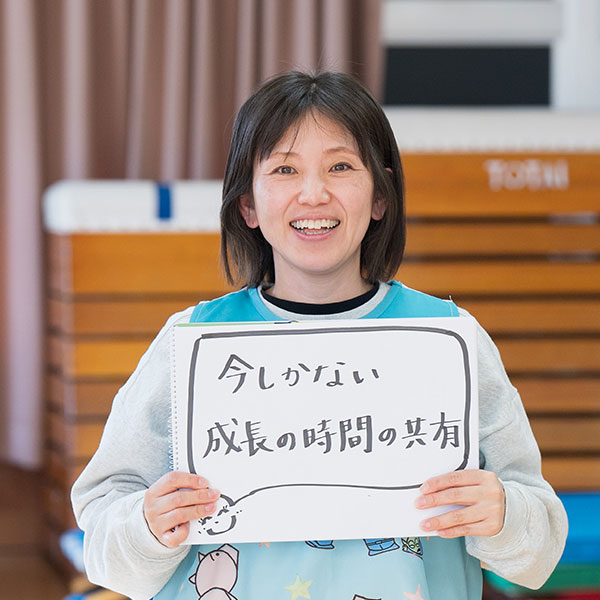 今しかない
成長の時間の共有